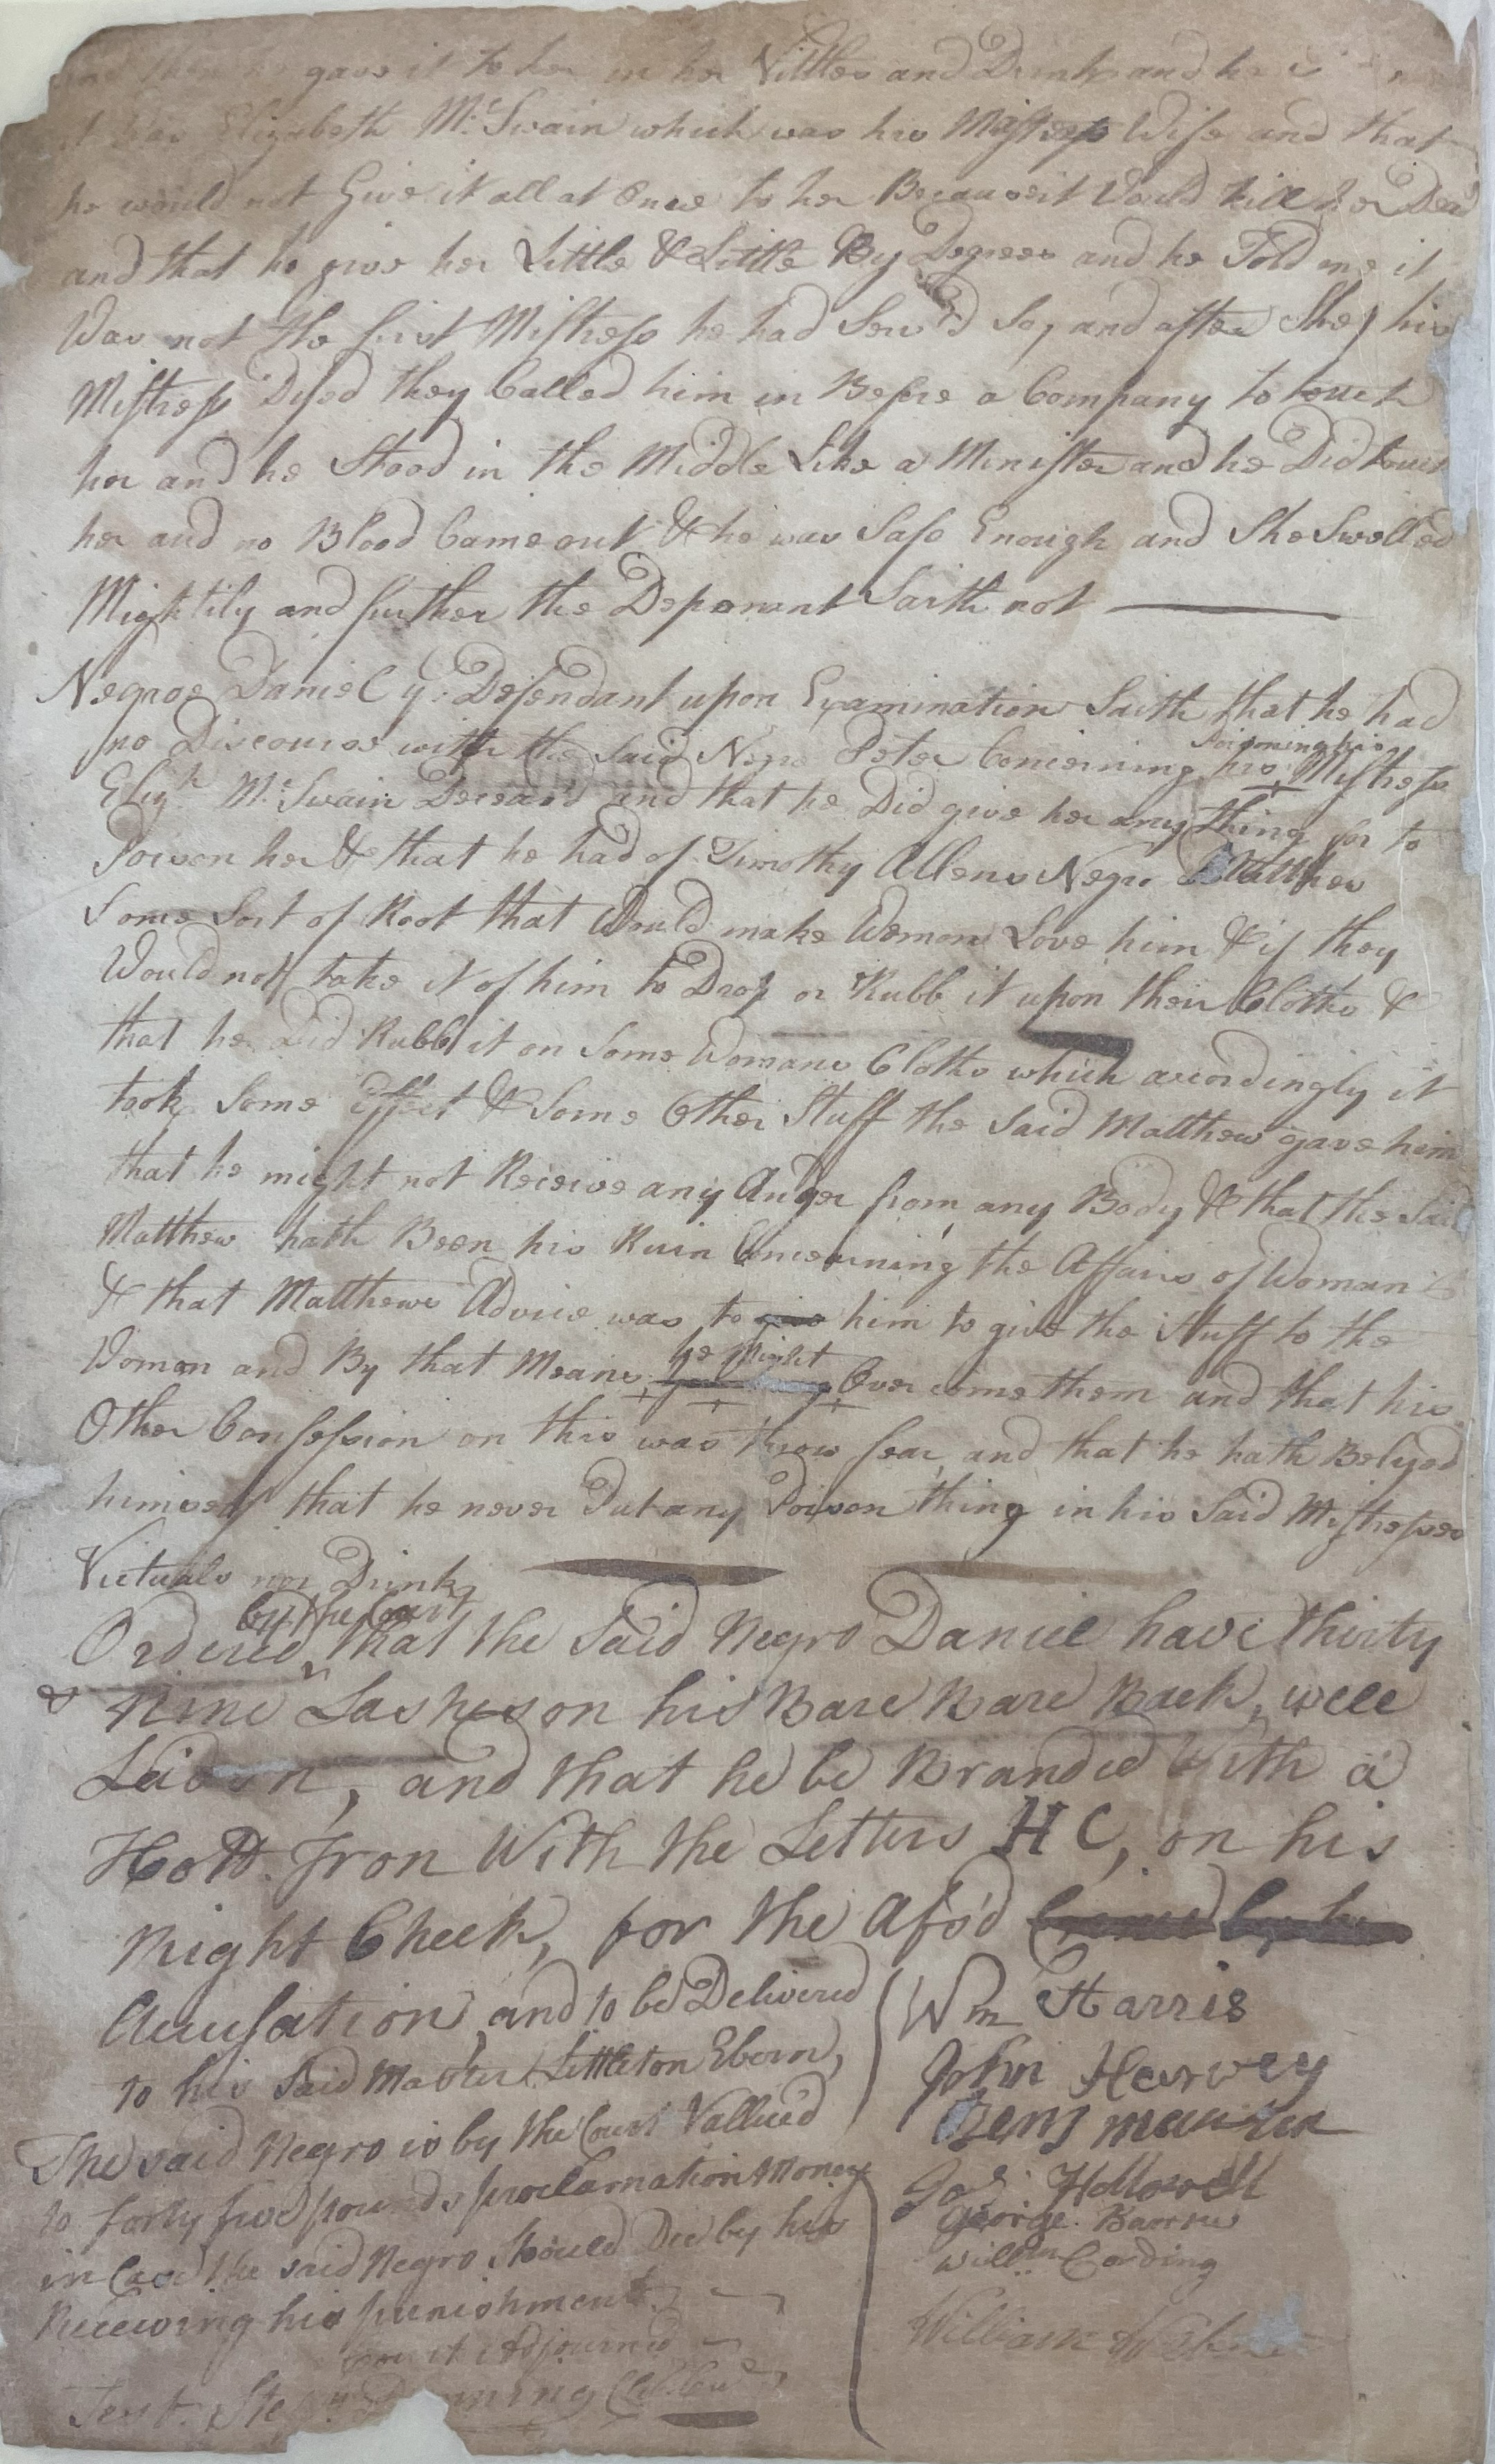 gave it to her in her Vittles and Drink and he
it was Elizabeth Mc.Swain which was his Masters Wife and that
he would not Give it all at Once to her Because it Would kill her Dead
and that he give her Little & Little By Degrees and he Told me it
Was not the first Mistress he had Serv'd So, and after She, his
Mistress Dyed they Called him in Before a Company to touch
her and he Stood in the Middle Like a Minister and he Did touch
her and no Blood Came out & he was Safe Enough and She Swelled
Mightily and further the Deponant Saith not
Negroe Daniel ye. Defendant upon Examination Saith that he had
no Discourse with the Said Negro Peter Concerning poisoning his Mistress
Elizh. Mc.Swain Deceas'd and that he Did give her any thing for to
Poison her & that he had of Timothy Allens Negro Matthew
Some Sort of Root that Would make Women Love him & if they
Would not take it of him to Drop or Rubb it upon their Cloths &
that he Did Rubb it on Some Womans Cloths which accordingly it
took Some Effect & Some Other Stuff the Said Matthew gave him
that he might not Receive any Anger from any Body & that the Said
Matthew hath Been his Ruin Concerning the Affairs of Woman
& that Matthews Advice was to give him to give the Stuff to the
Women and By that Means he Might Over come them and that his
Other Confession on this was throw fear and that he hath Belyed
himself that he never Put any Poison thing in his Said Mistresses
Victuals nor Drink
Ordered by the Court that the Said Negro Daniel have thirty
& Nine Lashes on his Bare Bare Back, well
Laid on, and that he be Branded With a
Hott Iron With the Letters H C, on his
Right Cheek, for the Afs'd
Accusation, and to be Delivered
to his Said Master Littleton Eborn,
The said Negro is by the Court Vallued
to forty five pounds proclamation Money
in Case the said Negro Should Die by his
Receiving his punishment
Court Adjourned
Test. Ste
Wm Harris
John Harvey
Benj
Hollowell
George Barrow
Willm Carding
William